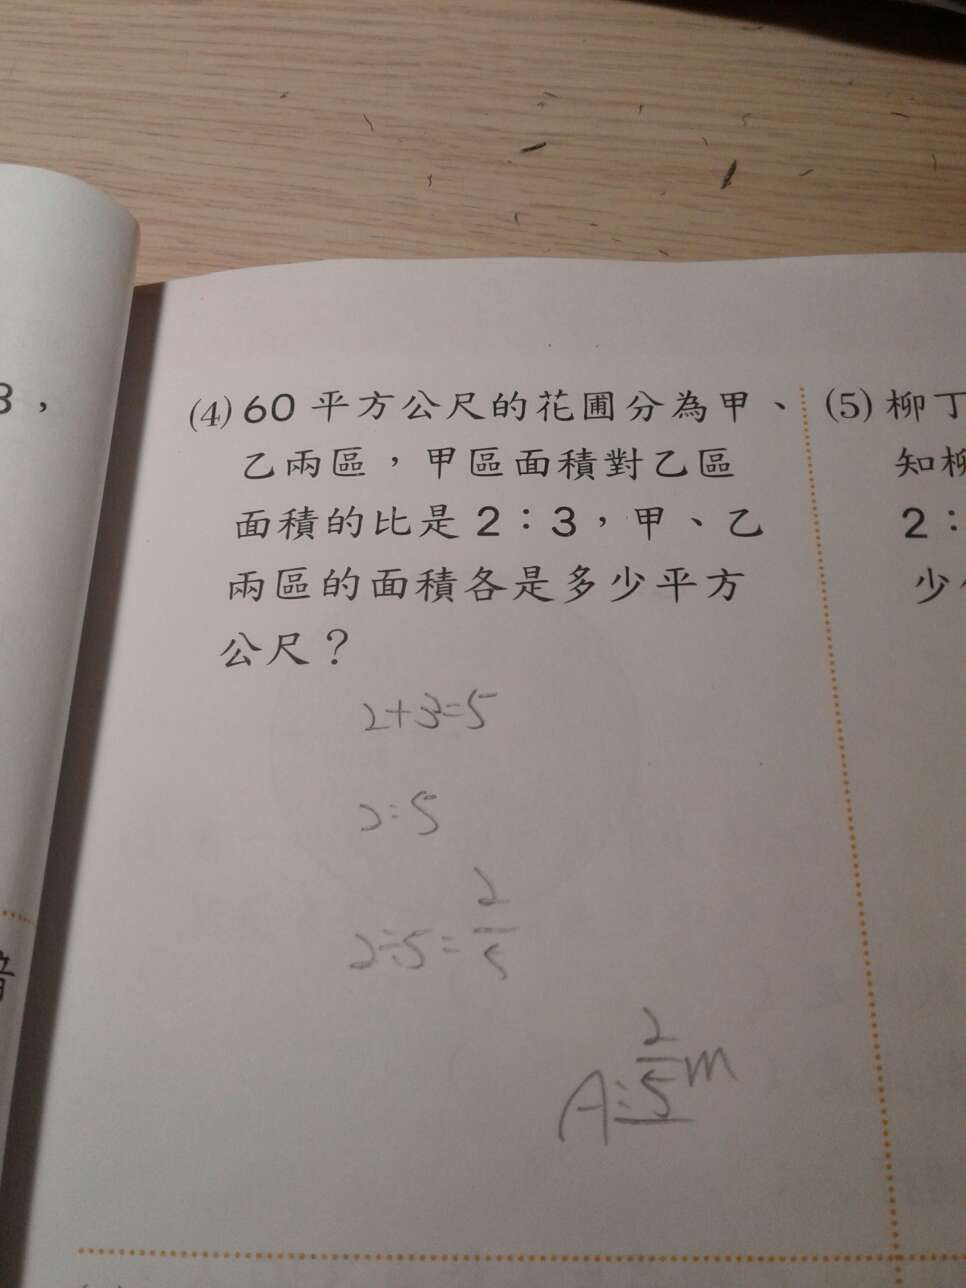 3，
(4) 60 平方公尺的花圃分為甲、
乙兩區，甲區面積對乙區
面積的比是 2：3，甲、乙
兩區的面積各是多少平方
公尺？
2+3=5
2:5
2÷5=2/5
A:2/5m
(5) 柳丁
知柳
2：
少